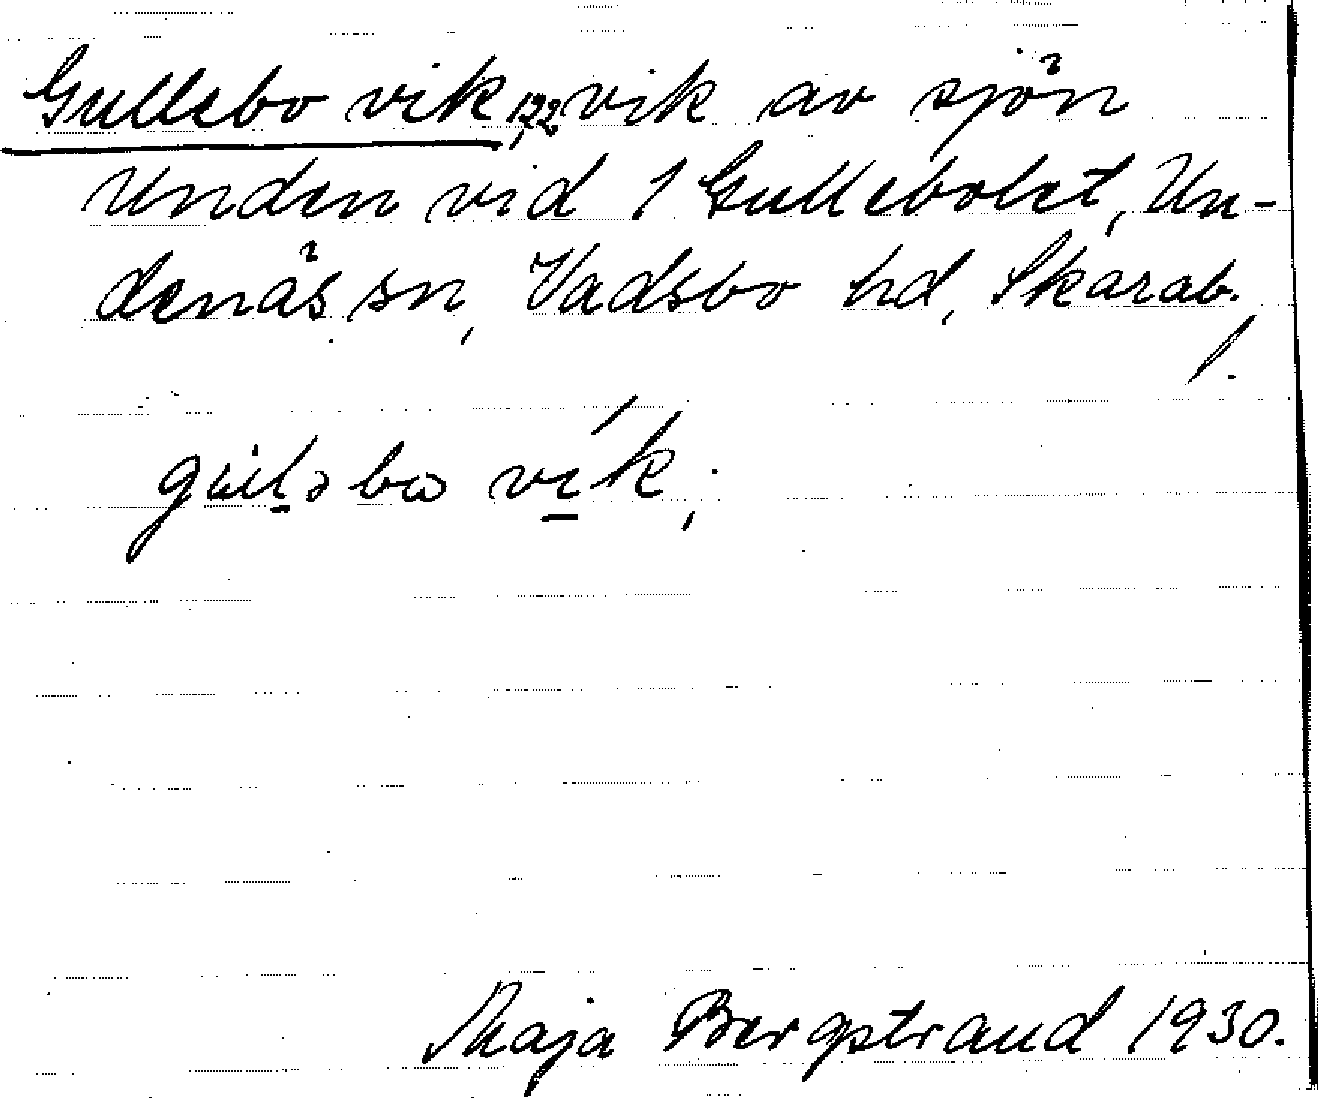 Gullebo vik, 122 vik av sjön
Unden vid 1 Gullebolet, Un-
denäs sn, Vadsbo hd, Skarab.
l.
gullə bω vík,
Maja Bergstrand 1930.